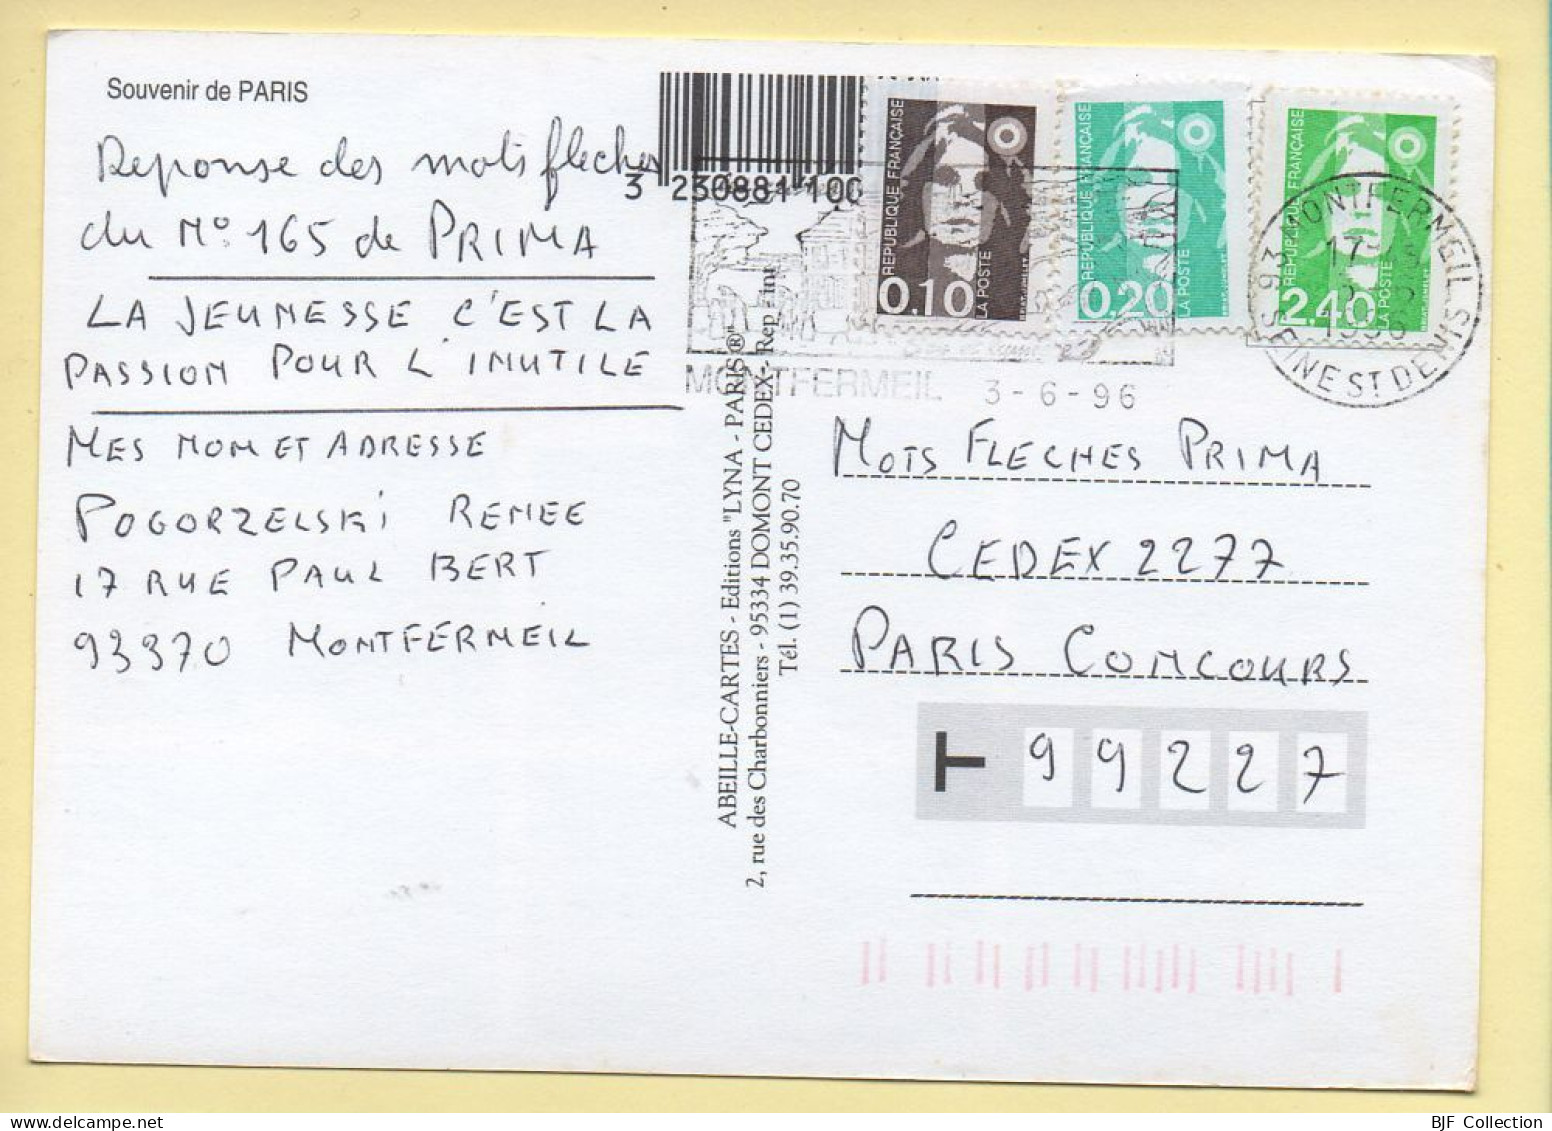 Souvenir de PARIS
Reponse des mots fleches
du N° 165 de PRIMA
LA JEUNESSE C'EST LA
PASSION POUR L'INUTILE
MES NOM ET ADRESSE
POGORZELSKI RENEE
17 RUE PAUL BERT
93370 MONTFERMEIL
3 230881 100
ABEILLE-CARTES - Editions "LYNA - PARIS"®
2, rue des Charbonniers - 95334 DOMONT CEDEX - Rep
Tél. (1) 39.35.90.70
REPUBLIQUE FRANÇAISE
0.10
LA POSTE
REPUBLIQUE FRANÇAISE
0.20
LA POSTE
REPUBLIQUE FRANÇAISE
2.40
LA POSTE
MONTFERMEIL 3-6-96
93 MONTFERMEIL
17
1996
SEINE ST DENIS
MOTS FLECHES PRIMA
CEDEX 2277
PARIS CONCOURS
T 99227
BJF Collection